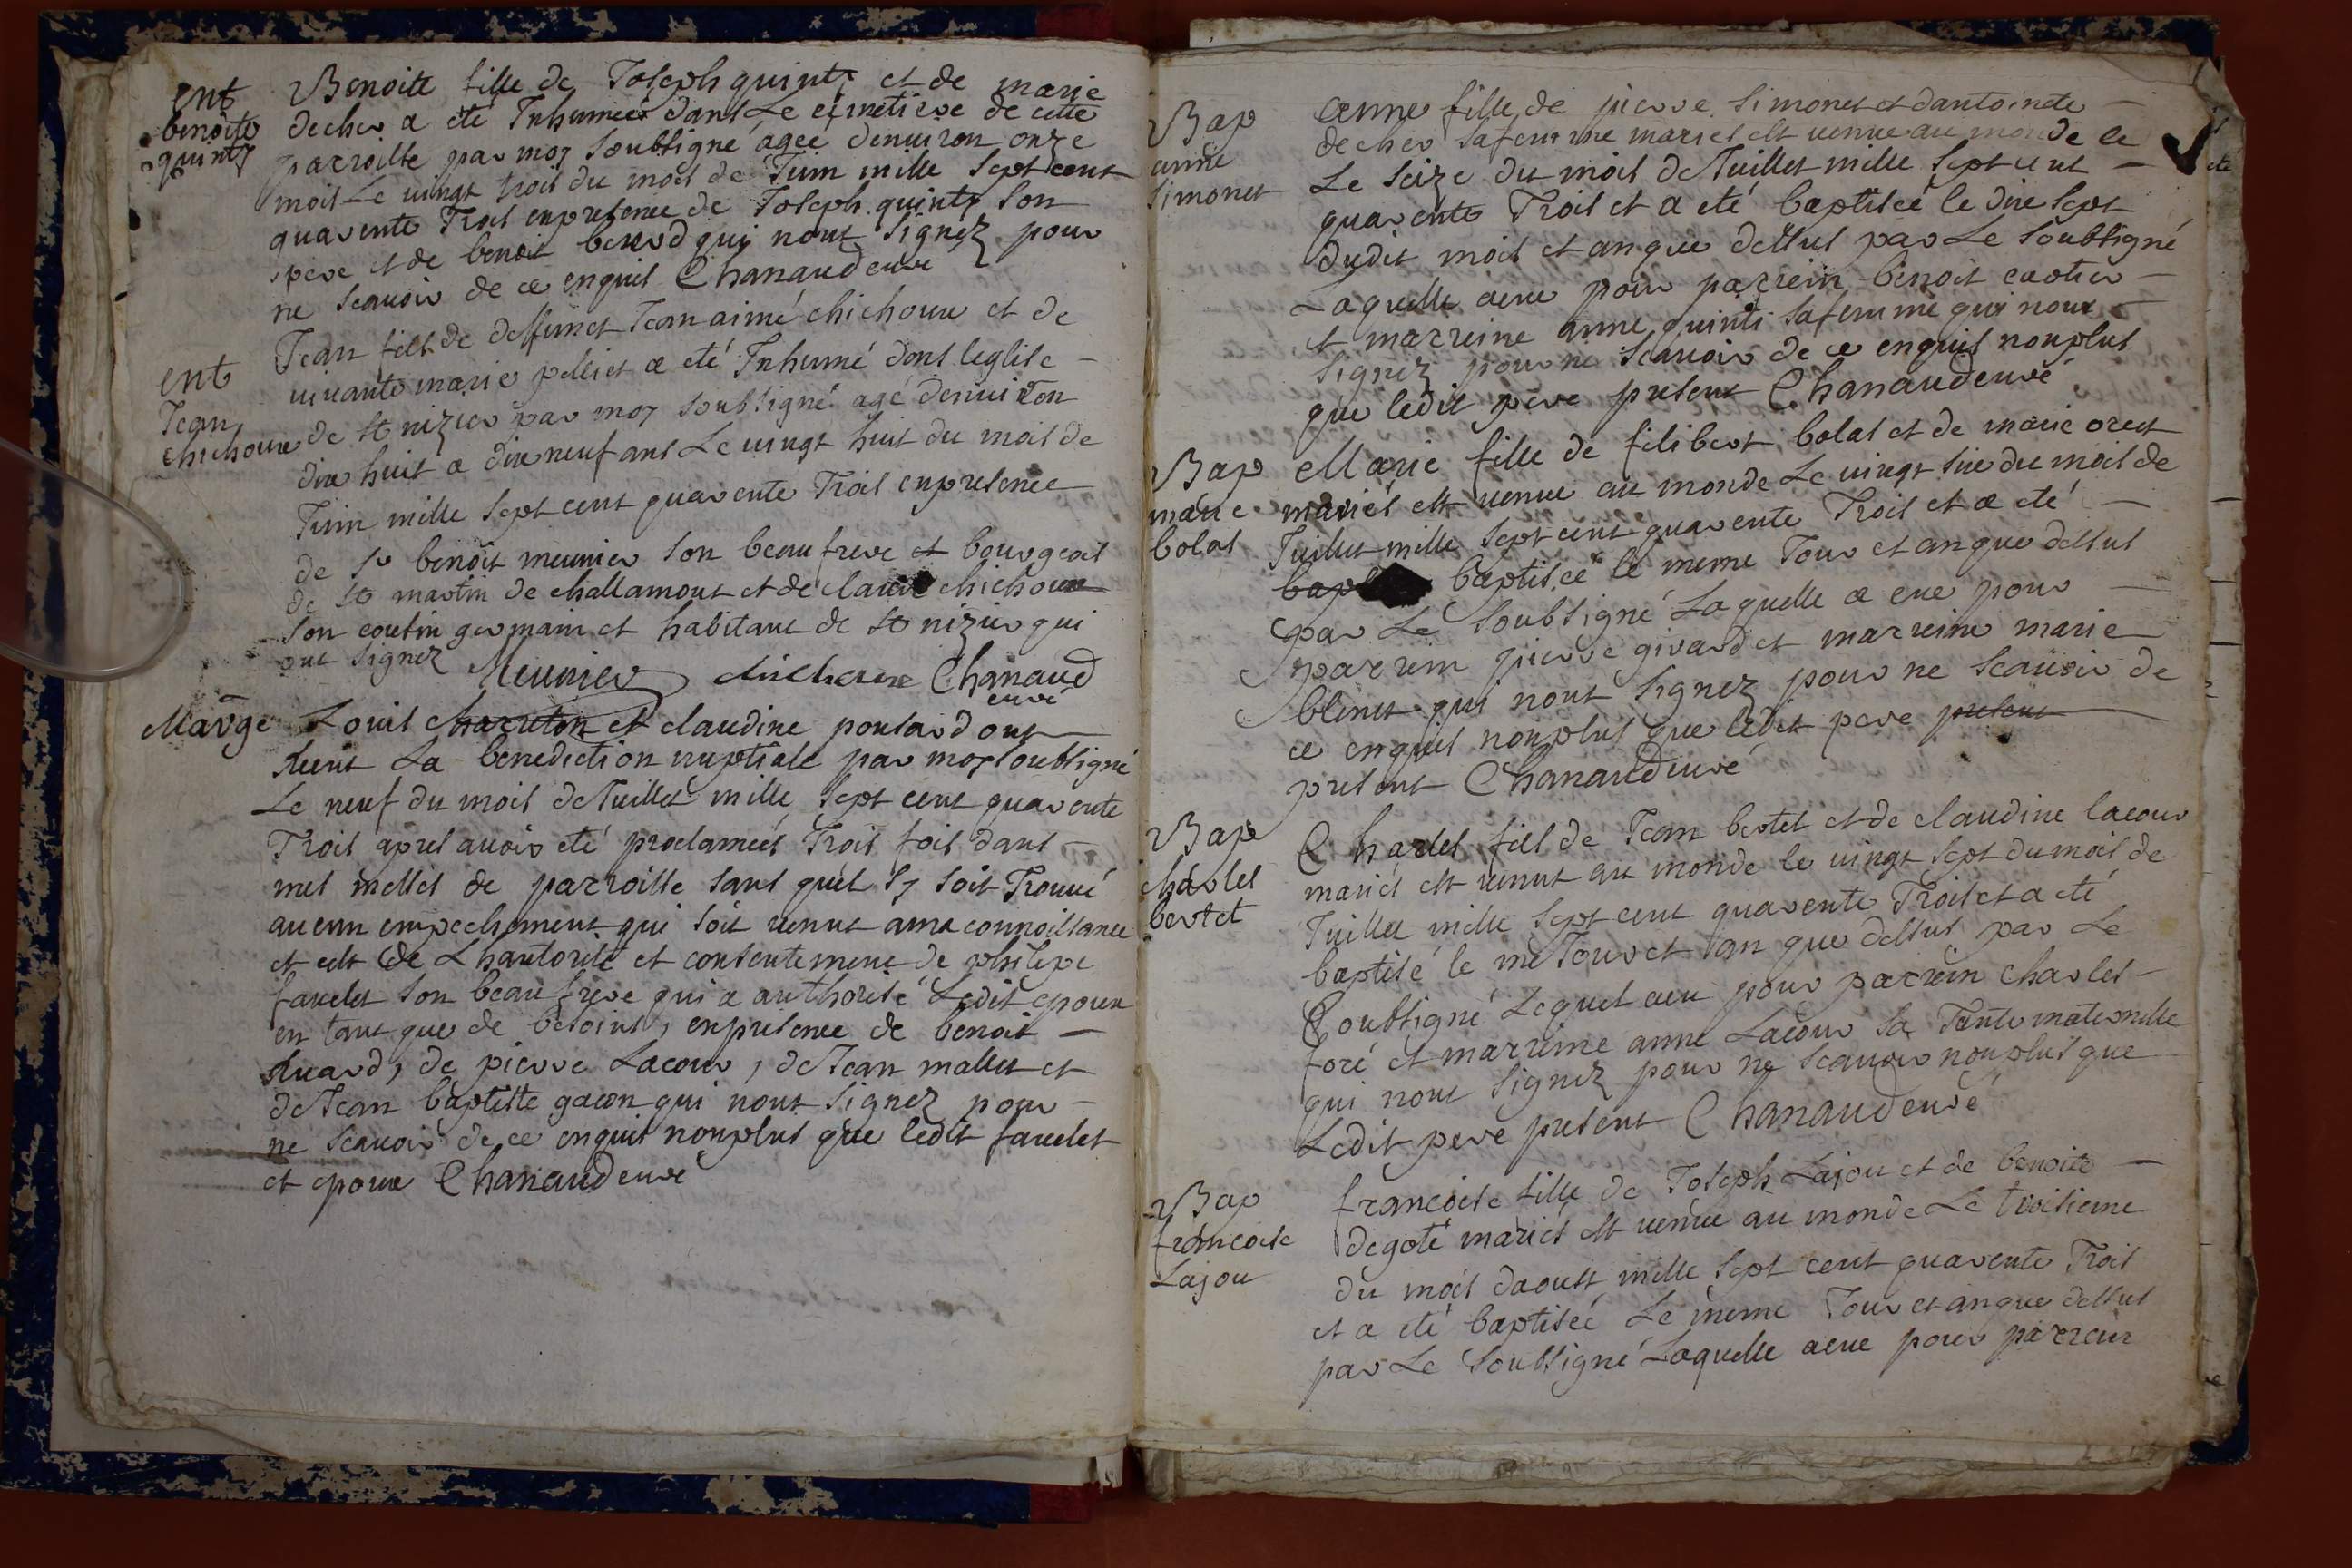 ent
benoite
quinty
Benoitte fille de Joseph quinty et de marie
decher a eté Inhumeé dans Le cimetiere de cette
parroisse par moy soubsigné ageé denuiron onze
mois Le uingt trois du mois de Juin mille sept cent
quarente Trois enpresence de Joseph quinty son
pere et de benoit berrod qui nont signez pour
ne scauoir de ce enquis Chanaud curé
ent
Jean
chichoux
Jean fils de deffunct Jean aimé chichoux et de
uiuante marie pelliet a eté Inhumé dans leglise
de st nizier par moy soubsigné agé denuiron
dix huit a dix neuf ans Le uingt huit du mois de
Juin mille sept cent quarente Trois enpresence
de sr benoit meunier son beaufrere et bourgeois
de st martin de challamont et de claude chichoux
son cousin germain et habitant de st nizier qui
ont signez Meunier chichoux Chanaud
curé
Marge
Louis charreton et claudine ponsard ont
recus La benediction nuptiale par moy soubsigné
Le neuf du mois de Juillet mille sept cent quarente
Trois apres auoir eté proclameés Trois fois dans
mes messes de parroisse sans quil sy soit Trouué
aucun empechement qui soit uenut ama connoissance
et cest de Lhautorité et consentement de philipe
fauelet son beau frere qui a authorisé Ledit epoux
en tant que de besoint, enpresence de benoit
suard, de pierre Lacour, de Jean mallet et
de Jean baptiste gacon qui nont signez pour
ne scauoir de ce enquis nonplus que ledit fauelet
et epoux Chanaud curé
Bap
anne
simonet
anne fille de pierre simonet et dantoinete
decher safemme mariés est uenue au monde le
Le seize du mois de Juillet mille sept cent
quarente Trois et a eté baptiseé le dixsept
dudit mois et an que dessus par Le soubsigné
Laquelle aeue pour parrein benoit cartier
et marreine anne quinti safemme qui nont
signez pour ne scauoir de ce enquis nonplus
que ledit pere present Chanaud curé
Bap
marie
bolas
Marie fille de filibert bolas et de marie oret
mariés est uenue au monde Le uingt six du mois de
Juillet mille sept cent quarente Trois et a eté
bap baptiseé le meme Jour et an que dessus
par Le soubsigné Laquelle a eue pour
parrein pierre girard et marreine marie
blenet qui nont signez pour ne scauoir de
ce enquis nonplus que ledit pere present
present Chanaud curé
Bap
charles
bertet
Charles fils de Jean bertet et de claudine lacour
mariés est uenut au monde le uingt sept du mois de
Juillet mille sept cent quarente Trois et a eté
baptisé le me Jour et lan que dessus par Le
soubsigné Lequel aeu pour parrein charles
foré et marreine anne Lacour sa Tante maternelle
qui nont signez pour ne scauoir nonplus que
Ledit pere present Chanaud curé
Bap
francoise
Lajou
francoise fille de Joseph Lajou et de benoite
degoté mariés est uenue au monde Le troisieme
du mois daoust mille sept cent quarente Trois
et a eté baptiseé Le meme Jour et an que dessus
par Le soubsigné Laquelle aeue pour parrein